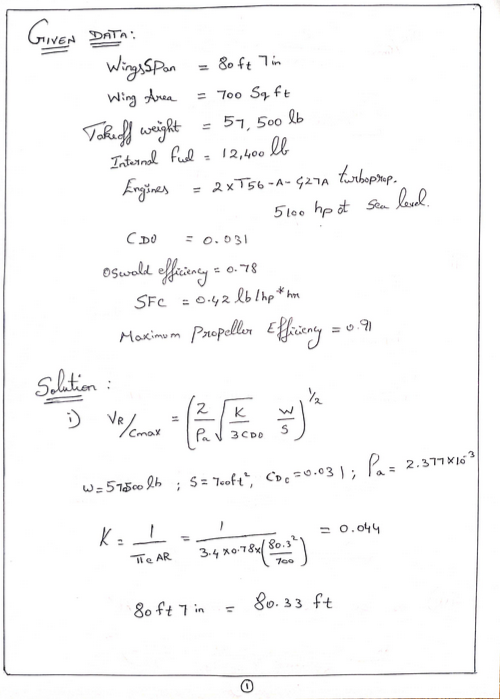 GIVEN DATA:
WingsSPan = 80ft 7in
Wing Area = 700 Sq ft
Takeoff weight = 57,500 lb
Internal fuel = 12,400 lb
Engines = 2xT56-A-427A turboprop.
5100 hp at sea level.
CD0 = 0.031
Oswald efficiency = 0.78
SFC = 0.42 lb/hp*hr
Maximum Propeller Efficiency = 0.91
Solution:
i) VR/Cmax = (2/Pa √(K/3CD0) W/S)^1/2
W=57500 lb ; S=700ft², CD0=0.031 ; Pa = 2.377×10^-3
K = 1/πeAR = 1/(3.4×0.78×(80.3²/700)) = 0.044
80ft 7 in = 80.33 ft
1